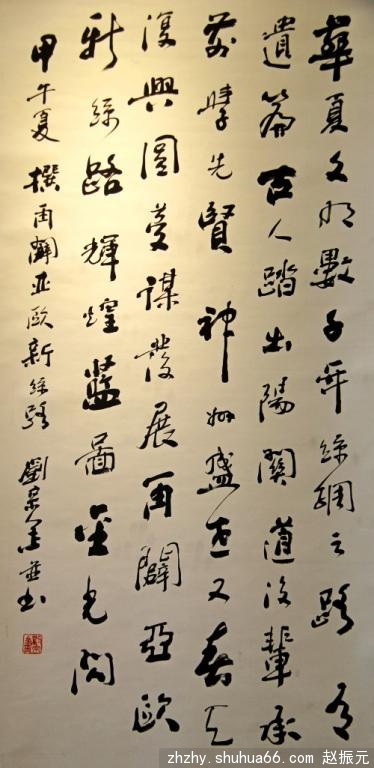 華夏文明數千年絲綢之路有
遺篇古人踏出陽關道後輩承
前學先賢神州盛世又春天
復興圓夢謀發展再闢亞歐
新絲路輝煌藍圖金光閃
甲午夏撰再闢亞歐新絲路 劉並書
zhzhy.shuhua66.com 赵振元